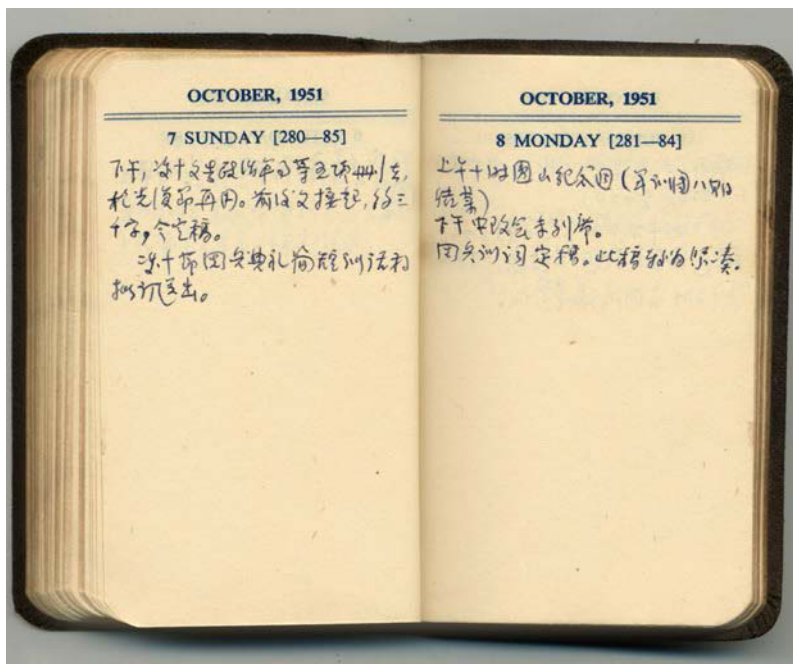 OCTOBER, 1951
7 SUNDAY [280—85]
下午，双十文告政治革命等五项删去，
于光复节再用。前后文接起，约三
千字，今定稿。
双十节阅兵典礼简短训话稿
拟讫送出。
OCTOBER, 1951
8 MONDAY [281—84]
上午十时圆山纪念周（军训团八期
结业）
下午中改会未列席。
阅兵训词定稿。此稿较为紧凑。